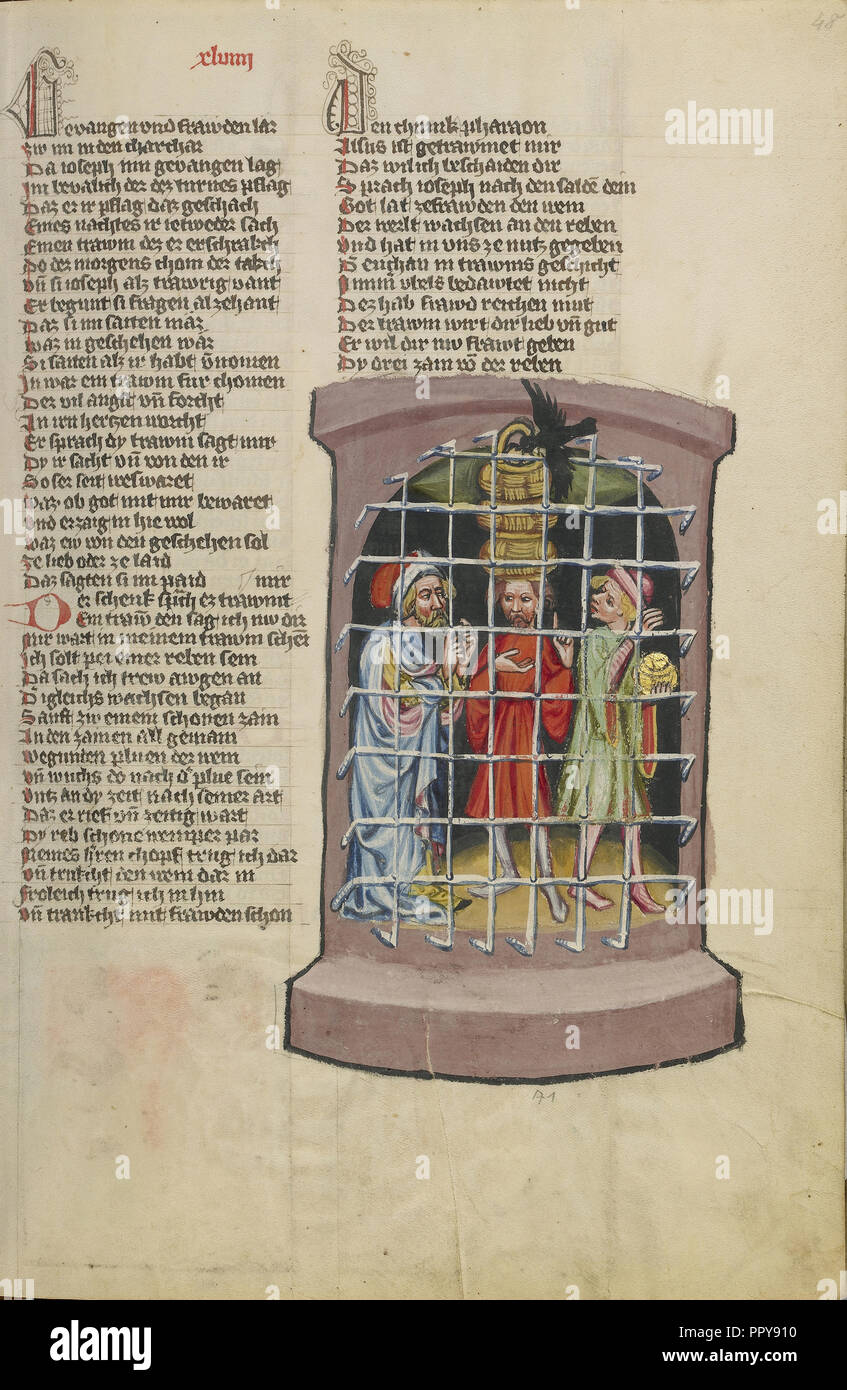 48
xlviiij
Gevangen vnd frawden lar
Zw im in den charchar
Da ioseph inn gevangen lag
Im bevalich der dez turnes pflag
Daz er ir pflag daz geschach
Eines nachtes ir ietweder sach
Einen trawm dez er erschrakch
Do der morgens chom der takch
Vn si ioseph alz trawrig vant
Er begunt si fragen al zehant
Daz si im saiten mär
Waz in geschehen wär
Si saiten alz ir habt vnomen
In war ein trawm fur chomen
Der vil angst vn forcht
In irn hertzen worcht
Er sprach dy trawm sagt mir
Dy ir sacht vn von den ir
So ser seit
Waz ob got mit mir bewaret
Vnd erzaig in hie wol
Waz ew von den geschehen sol
Ze lieb oder ze laid
Daz sagten si im paid
mir
Der schenk sprach ez trawmt
Den trawm den sag ich nw dir
Mir wart in meinem trawm schein
Ich solt pei einer reben sein
Da sach ich trew awgen an
Di gleichs wachsen began
Sanft zw einem schonen zam
An den zamen all gemain
Wegunnen pluen der wein
Vn wuchs do nach d plue sein
Vntz an dy zeit nach seiner art
Daz er rief vn zeitig wart
Dy reb schone wemper par
Meines hren chopf trug ich dar
Vn trukcht den wein dar in
Froleich trug ich in hin
Vn trankch mit frawden schon
Den chunik pharaon
Alsus ist getrawmet mir
Daz wil ich beschaiden dir
Sprach ioseph nach den salde dein
Got lat ze frawden den wein
Der werlt wachsen an den reben
Vnd hat in vns ze nutz gegeben
D euchau in trawms geschicht
Immir vbels bedawtet nicht
Dez hab frawd reichen mut
Der trawm wirt dir lieb vn gut
Er wil dir nw frawt geben
Dy drei zam vo der reben
71
alamy
alamy
Image ID: PPY910
www.alamy.com